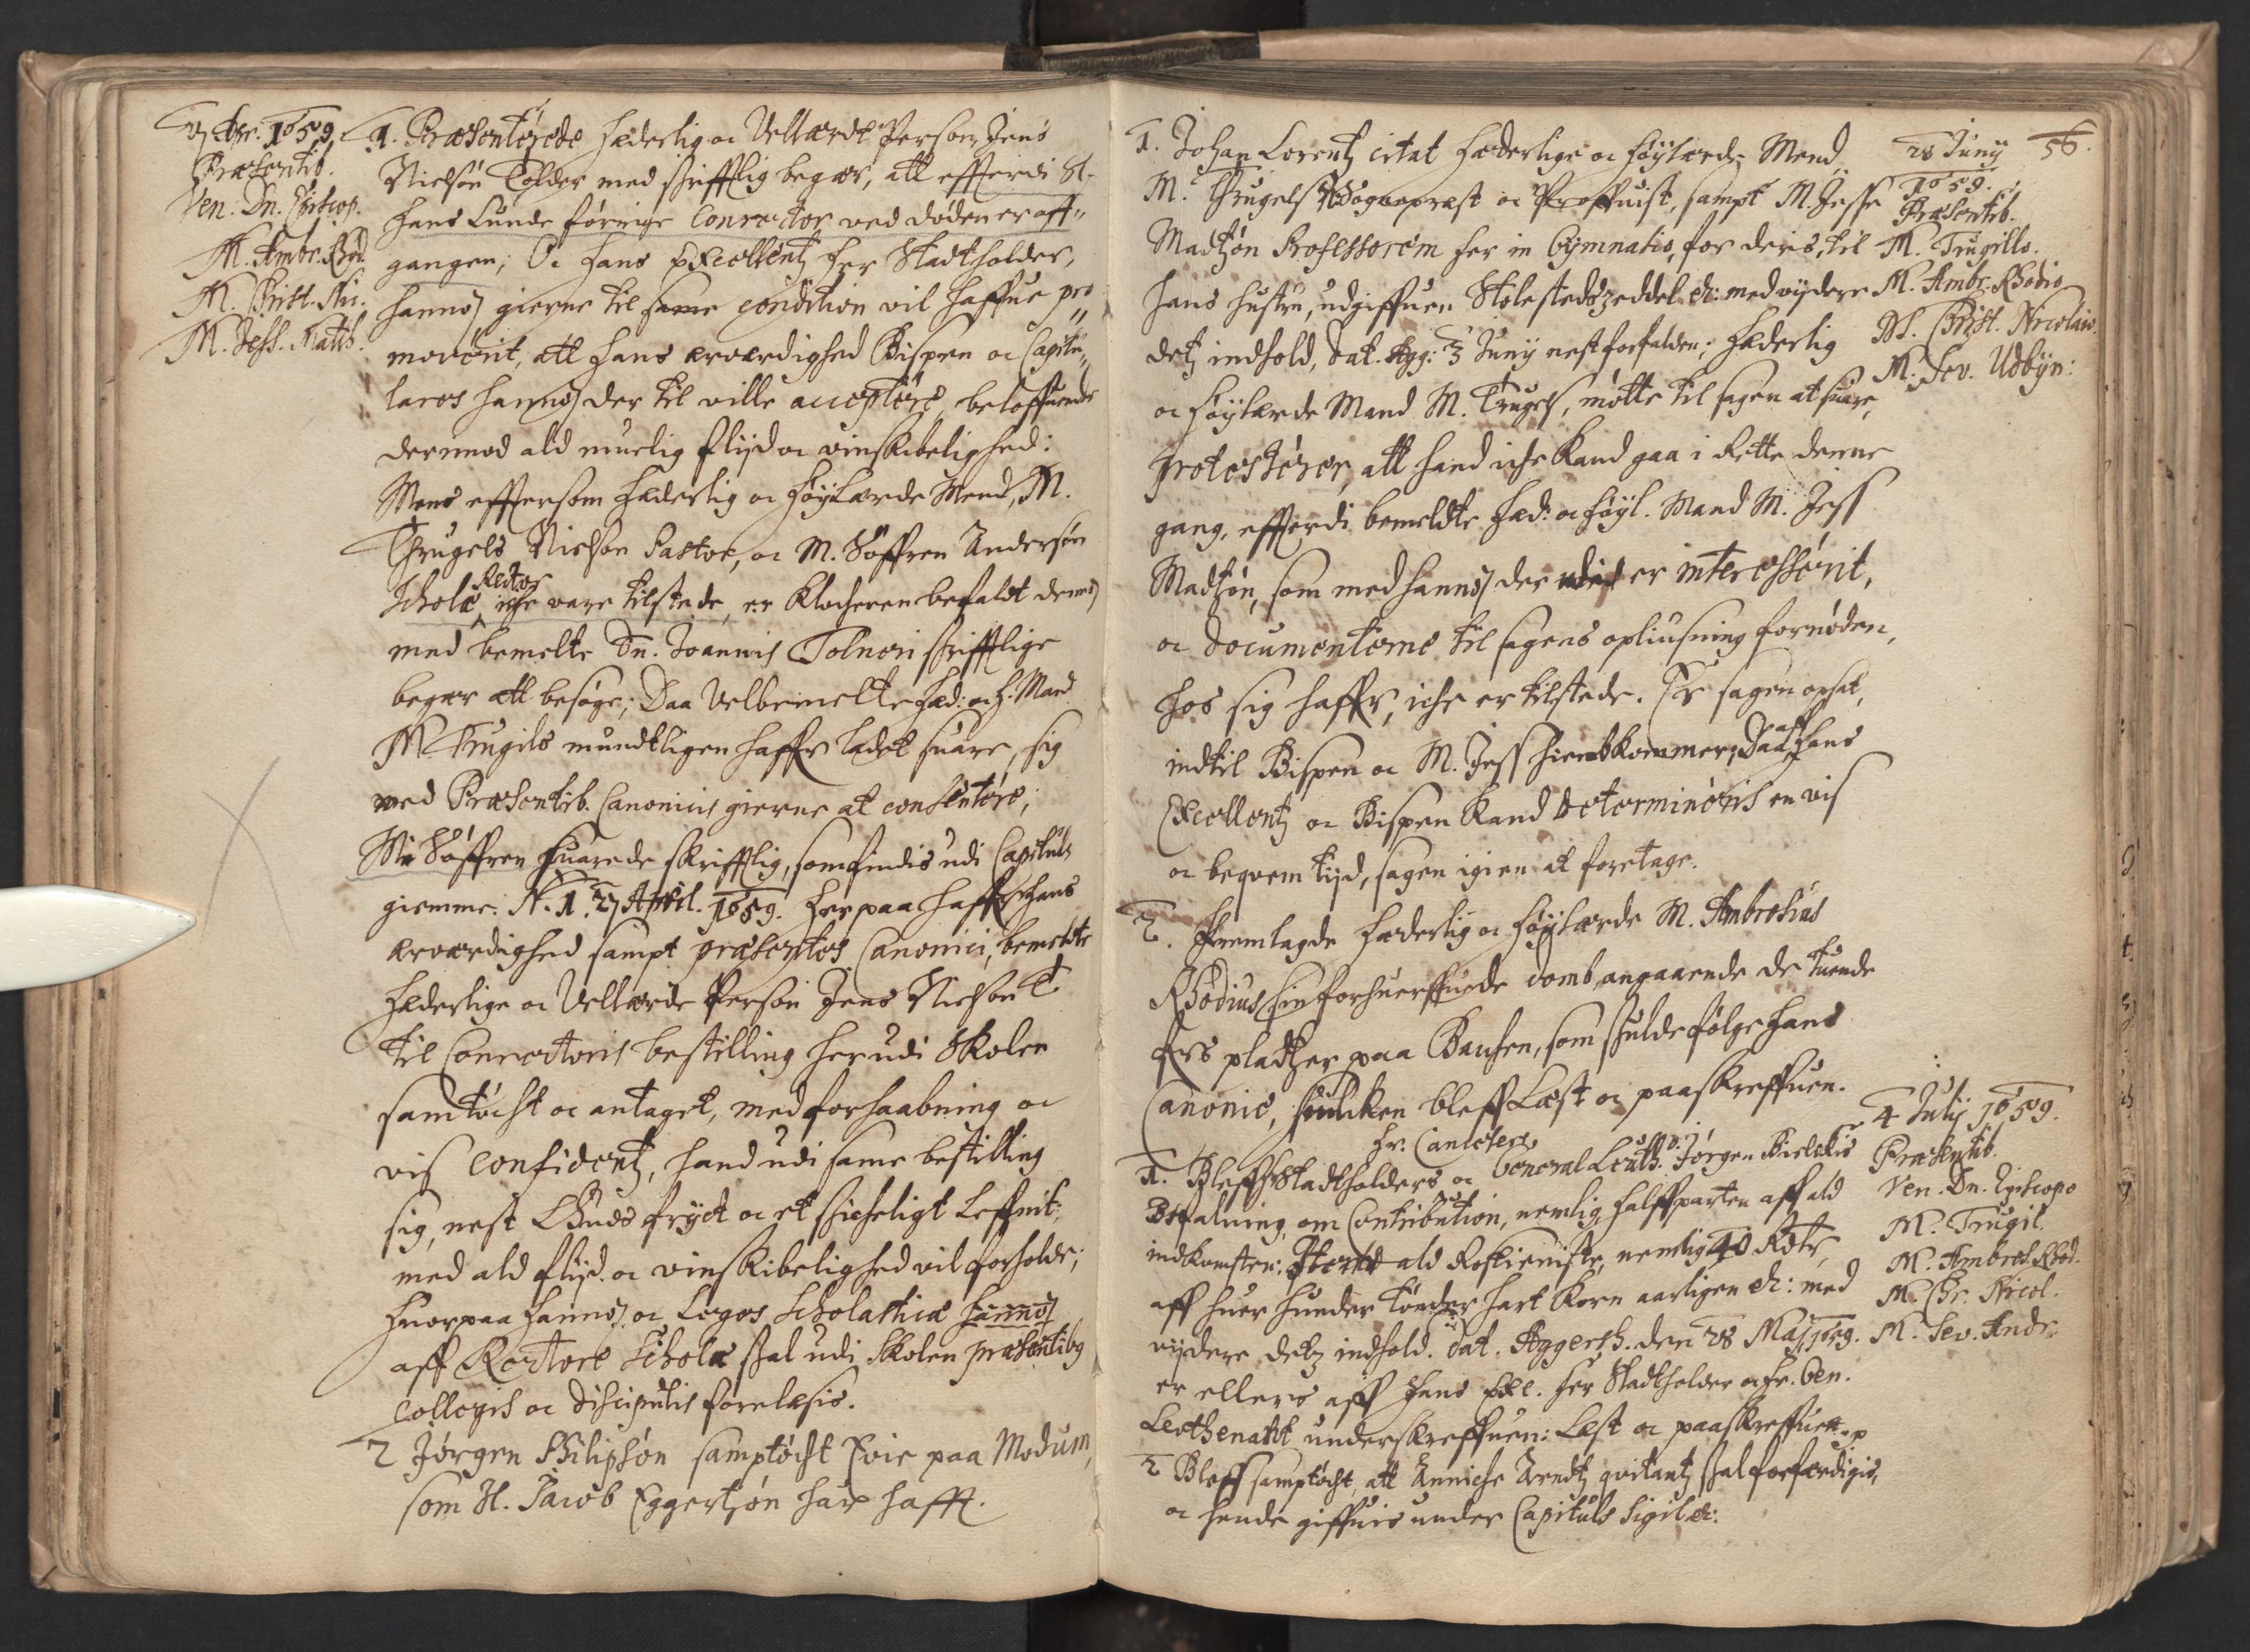 27 Apr. 1659.
Præsentib.
Ven. Dn. Episcop.
M. Ambr. Rhod.
M. Christ. Nic.
M. Jess. Matth.
1. Præsenterede Hæderlig oc Vellærde Person Jens
Nielsøn Tolder med skrifftlig begær, att efftterdi Sl.
Hans Lunde førrige Conrector ved døden er aff„
gangen; Oc Hans Excellentz Her Stadtholder,
hannos gierne til same condition vil haffue pro„
moverit, att Hans ærværdighed Bispen oc Capitu„
lares hannos der til ville acceptere, beloffuende
dermed ald muelig flijd oc vinskibelighed:
Mens efftersom Hæderlig oc Høylærde Mend, M.
Thrugels Nielsøn Pastor, oc M. Søffren Andersøn
Scholæ Rector iche vare tilstede, er Klocheren befalet dennos
med bemelte Dn. Joannis Tolneri skrifftlige
begær att besøge; Daa Velbemelte Hæd: oc H. Mand
M. Trugils mundtligen haffr ladet suare, sig
med Præsentib. Canonicis gierne at consentere;
M. Søffren suarede skrifftlig, som findis udi Capitulz
giemme. N. 1. 27 April. 1659. Her paa haffr Hans
ærværdighed sampt præsentes Canonici, bemelte
Hæderlige oc Vellærde Person Jens Nielsøn T.
til Conrectoris bestilling her udi Skolen
samtøcht oc antaget, med forhaabning oc
vis confidentz, hand udi same bestilling
sig, nest Guds frÿct oc et skicheligt Leffnit,
med ald flijd oc vinskibelighed vil forholde;
Huorpaa hannos oc Leges Scholasticæ hannos
aff Rectore Scholæ skal udi Skolen præsentibus
collegis oc discipulis forelæsis.
2 Jørgen Philipsøn samptøcht Evie paa Modum,
som Sl. Jacob Eggertsøn har hafft.
56.
28 Junij
1659.
Præsentib.
M. Trugillo.
M. Ambr. Rhodio
M. Christ. Nicolaio.
M. Sev. Udbyn:
1. Johan Lorentz citat Hæderlige oc Høylærde Mend
M. Thrugels Sogneprest oc Proffuist, sampt M. Jesse
Madtzøn Professorem her in Gymnasio, for deris, til
hans hustru, udgiffuen Stolestedzeddel etc: med vijdere
detz indhold, Dat. Agg: 3 Junij nest forfalden; Hæderlig
oc Høylærde Mand M. Trugels, mötte til sagen at suare,
protesterer, att hand iche kand gaa i Rette denne
gang, effterdi bemeldte Hæd: oc Høyl. Mand M. Jess
Madtzøn, som med hannos der udi er interesserit,
oc documenterne til sagens opliusning fornøden,
hos sig haffr, iche er tilstede. Er sagen opsat,
indtil Bispen oc M. Jess hiemkommer, Daa aff Hans
Excellentz oc Bispen kand determineris en vis
oc beqvem tijd, sagen igien at foretage.
2. Fremlagde Hæderlig oc Høylærde M. Ambrosius
Rhodius sin forhuerffuede domb, angaaende de tuende
pladtzer paa Bancken, som skulde følge hans
Canonie, huilcken bleff Læst oc paaskreffuen.
4 Julij 1659.
Præsentib.
Ven. Dn. Episcopo
M. Trugil.
M. Ambros. Rhod.
M. Chr. Nicol.
M. Sev. Andr.
Hr. Cantzlers
1. Bleff Stadtholders oc General Leuth. Jørgen Bielckis
Befalning, om Contribution, nemlig halffparten aff ald
indkomsten; ald Rostieniste, nemlig 40 Rdlr,
aff huer hunder tønder hart korn aarligen etc: med
vijdere detz indhold. Dat. Aggersh. den 28 Maj 1659.
er ellers aff Hans Exc. Her Stadtholder oc Hr. Gen.
Leuthenant underskreffuen: Læst oc paaskreffuet.
2 Bleff samptøcht, att Anniche Arndtz qvitantz skal forfærdigis,
oc hende giffuis under Capituls Sigil etc: